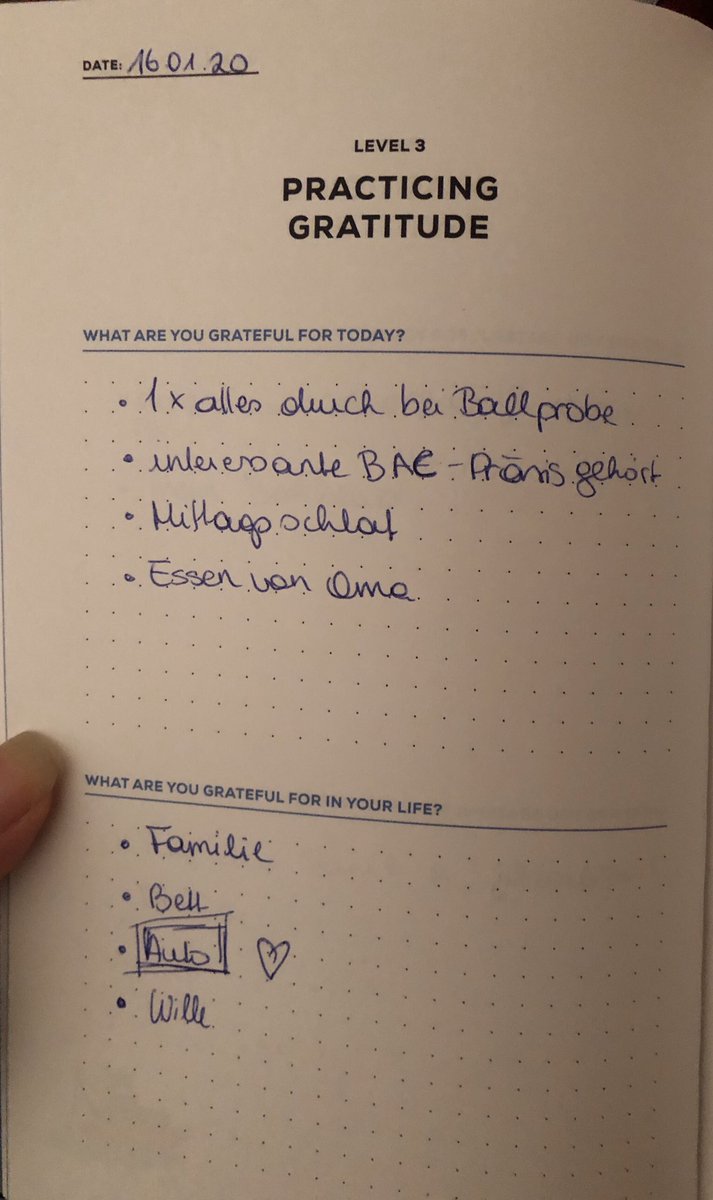 DATE: 16.01.20
LEVEL 3
PRACTICING
GRATITUDE
WHAT ARE YOU GRATEFUL FOR TODAY?
• 1x alles durch bei Ballprobe
• interessante BAE-Präsis gehört
• Mittagsschlaf
• Essen von Oma
WHAT ARE YOU GRATEFUL FOR IN YOUR LIFE?
• Familie
• Bett
• Auto ♡
• Wille